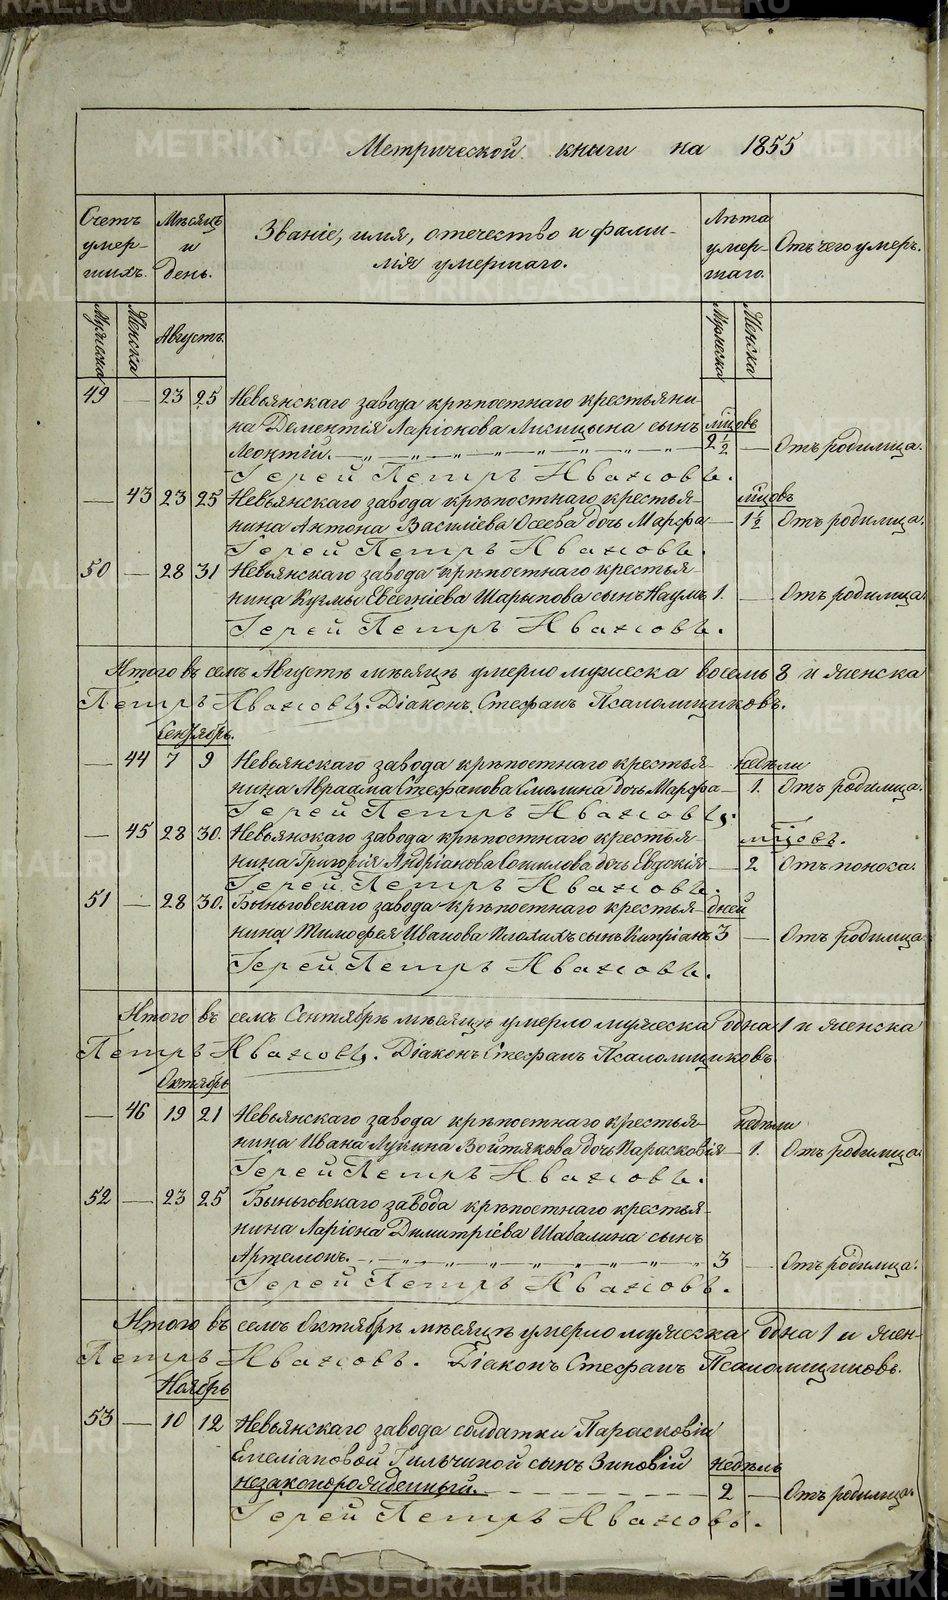 METRIKI.GASO-URAL.RU
Метрической книги на 1855
Счетъ умер- шихъ. Мѣсяцъ и день. Званіе, имя, отечество и фами- лія умершаго. Лѣта умер- шаго. Отъ чего умеръ.
Мужеска Женска Августъ. Мужеска Женска
49 — 23 25 Невьянскаго завода крѣпостнаго крестьяни-
на Дементія Ларіонова Лисицына сынъ мцовъ
Леонтій. — „ — „ — „ — „ — „ — „ — 2 1/2 — Отъ родимца.
Іерей Петръ Ивановъ.
— 43 23 25 Невьянскаго завода крѣпостнаго крестья- мцовъ
нина Антона Василіева Осеева дочь Марфа — 1 1/2 Отъ родимца.
Іерей Петръ Ивановъ.
50 — 28 31 Невьянскаго завода крѣпостнаго крестья-
нина Кузмы Евсегніева Шарыпова сынъ Наумъ 1. — Отъ родимца.
Іерей Петръ Ивановъ.
Итого въ семъ Августѣ мѣсяцѣ умерло мужеска восемь 8 и женска
Петръ Ивановъ. Діаконъ Стефанъ Псаломщиковъ.
Сентябрь.
— 44 7 9 Невьянскаго завода крѣпостнаго крестья- недѣли
нина Авраама Стефанова Смолина дочь Марфа — 1. Отъ родимца.
Іерей Петръ Ивановъ.
— 45 28 30. Невьянскаго завода крѣпостнаго крестья- мцовъ.
нина Григорія Андріанова дочь Евдокія — 2 Отъ поноса.
Іерей Петръ Ивановъ.
51 — 28 30. Быньговскаго завода крѣпостнаго крестья- дней
нина Тимофея Иванова сынъ Кипріанъ 3 — Отъ родимца.
Іерей Петръ Ивановъ.
Итого въ семъ Сентябрѣ мѣсяцѣ умерло мужеска одна 1 и женска
Петръ Ивановъ. Діаконъ Стефанъ Псаломщиковъ.
Октябрь
— 46 19 21 Невьянскаго завода крѣпостнаго крестья- недѣли
нина Ивана Лукина Войтякова дочь Парасковія — 1. Отъ родимца.
Іерей Петръ Ивановъ.
52 — 23 25 Быньговскаго завода крѣпостнаго крестья-
нина Ларіона Димитріева Шабалина сынъ
Артемонъ. — „ — „ — „ — „ — „ — „ — 3 — Отъ родимца.
Іерей Петръ Ивановъ.
Итого въ семъ Октябрѣ мѣсяцѣ умерло мужеска одна 1 и жен-
Петръ Ивановъ. Діаконъ Стефанъ Псаломщиковъ.
Ноябрь
53 — 10 12 Невьянскаго завода солдатки Парасковіи
Емеліановой Гильчиной сынъ Зиновій недѣль
незаконорожденный. — — — — 2 — Отъ родимца.
Іерей Петръ Ивановъ.
METRIKI.GASO-URAL.RU